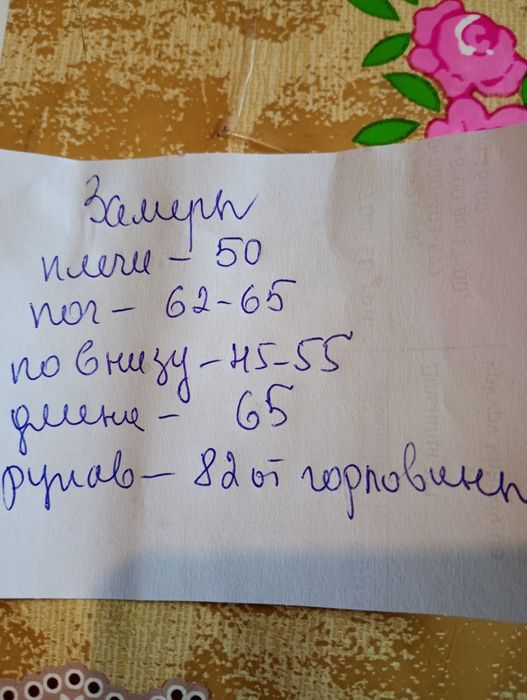 Замеры
плечи - 50
пог - 62-65
по внизу - 45-55
длина - 65
рукав - 82 от горловины